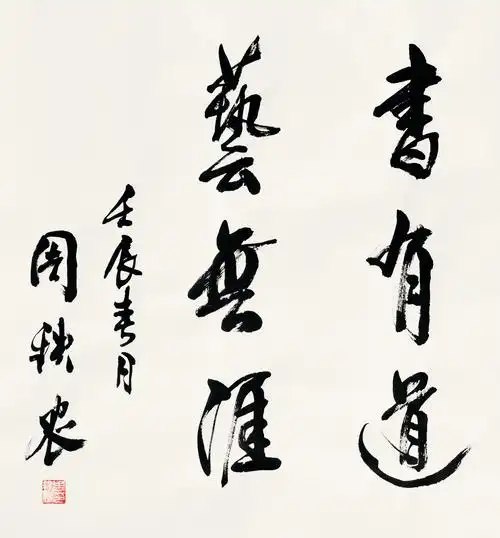 書有道
藝無涯
壬辰春月
周铁农